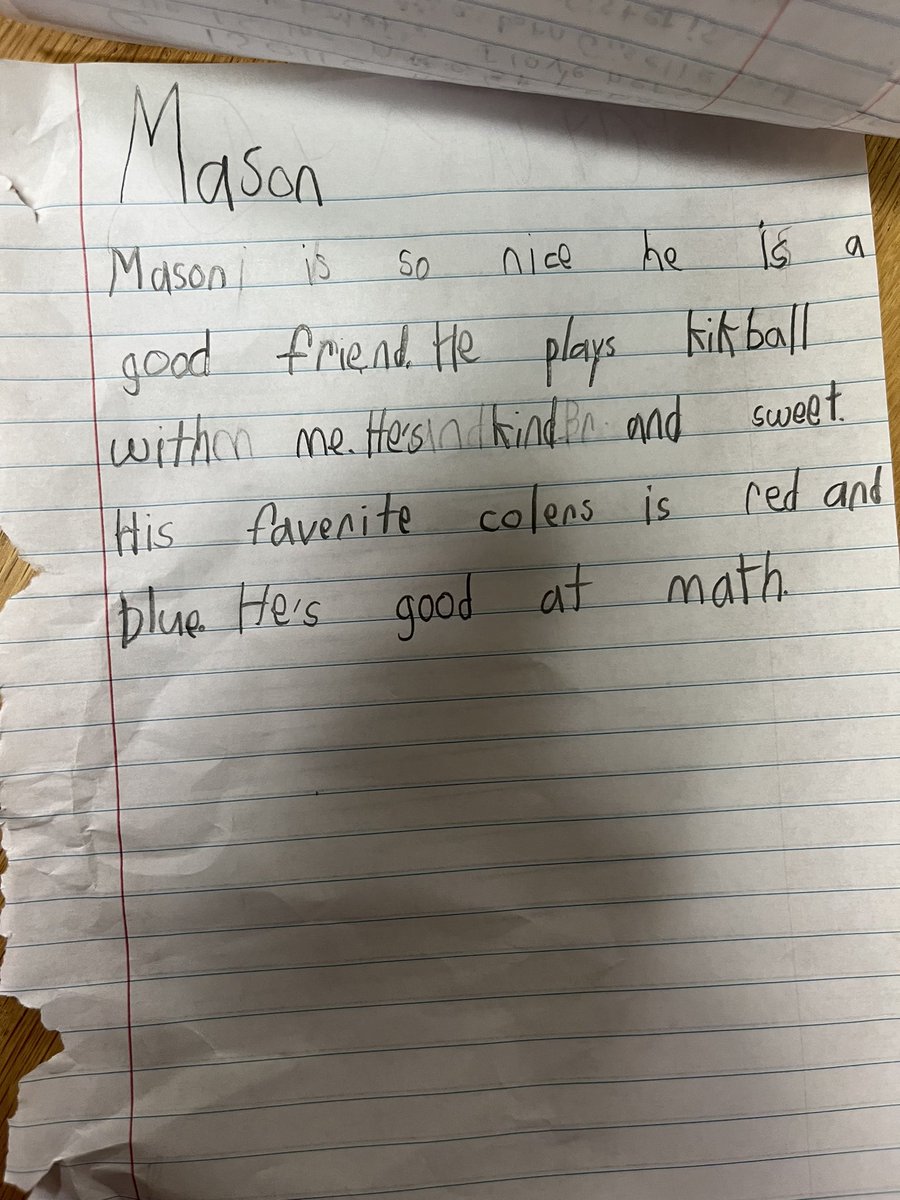 Mason
Mason is so nice he is a
good friend. He plays kikball
with me. He's kind and sweet.
His faverite colers is red and
blue. He's good at math.